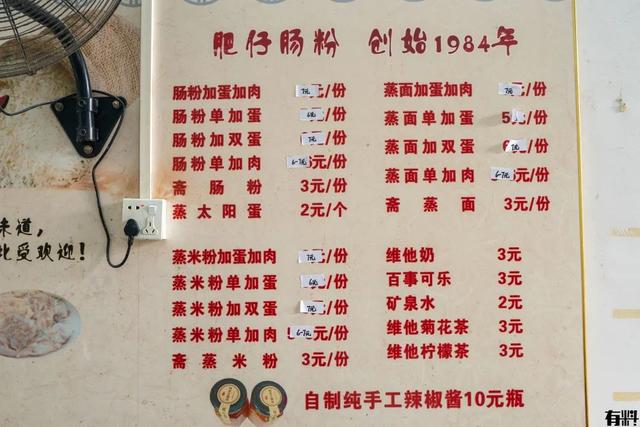 肥仔肠粉 创始1984年
肠粉加蛋加肉 7元/份
肠粉单加蛋 6元/份
肠粉加双蛋 7元/份
肠粉单加肉 6-7元/份
斋肠粉 3元/份
蒸太阳蛋 2元/个
蒸面加蛋加肉 7元/份
蒸面单加蛋 5元/份
蒸面加双蛋 7元/份
蒸面单加肉 6-7元/份
斋蒸面 3元/份
蒸米粉加蛋加肉 7元/份
蒸米粉单加蛋 6元/份
蒸米粉加双蛋 7元/份
蒸米粉单加肉 6-7元/份
斋蒸米粉 3元/份
维他奶 3元
百事可乐 3元
矿泉水 2元
维他菊花茶 3元
维他柠檬茶 3元
自制纯手工辣椒酱10元瓶
味道,
北受欢迎!
有料